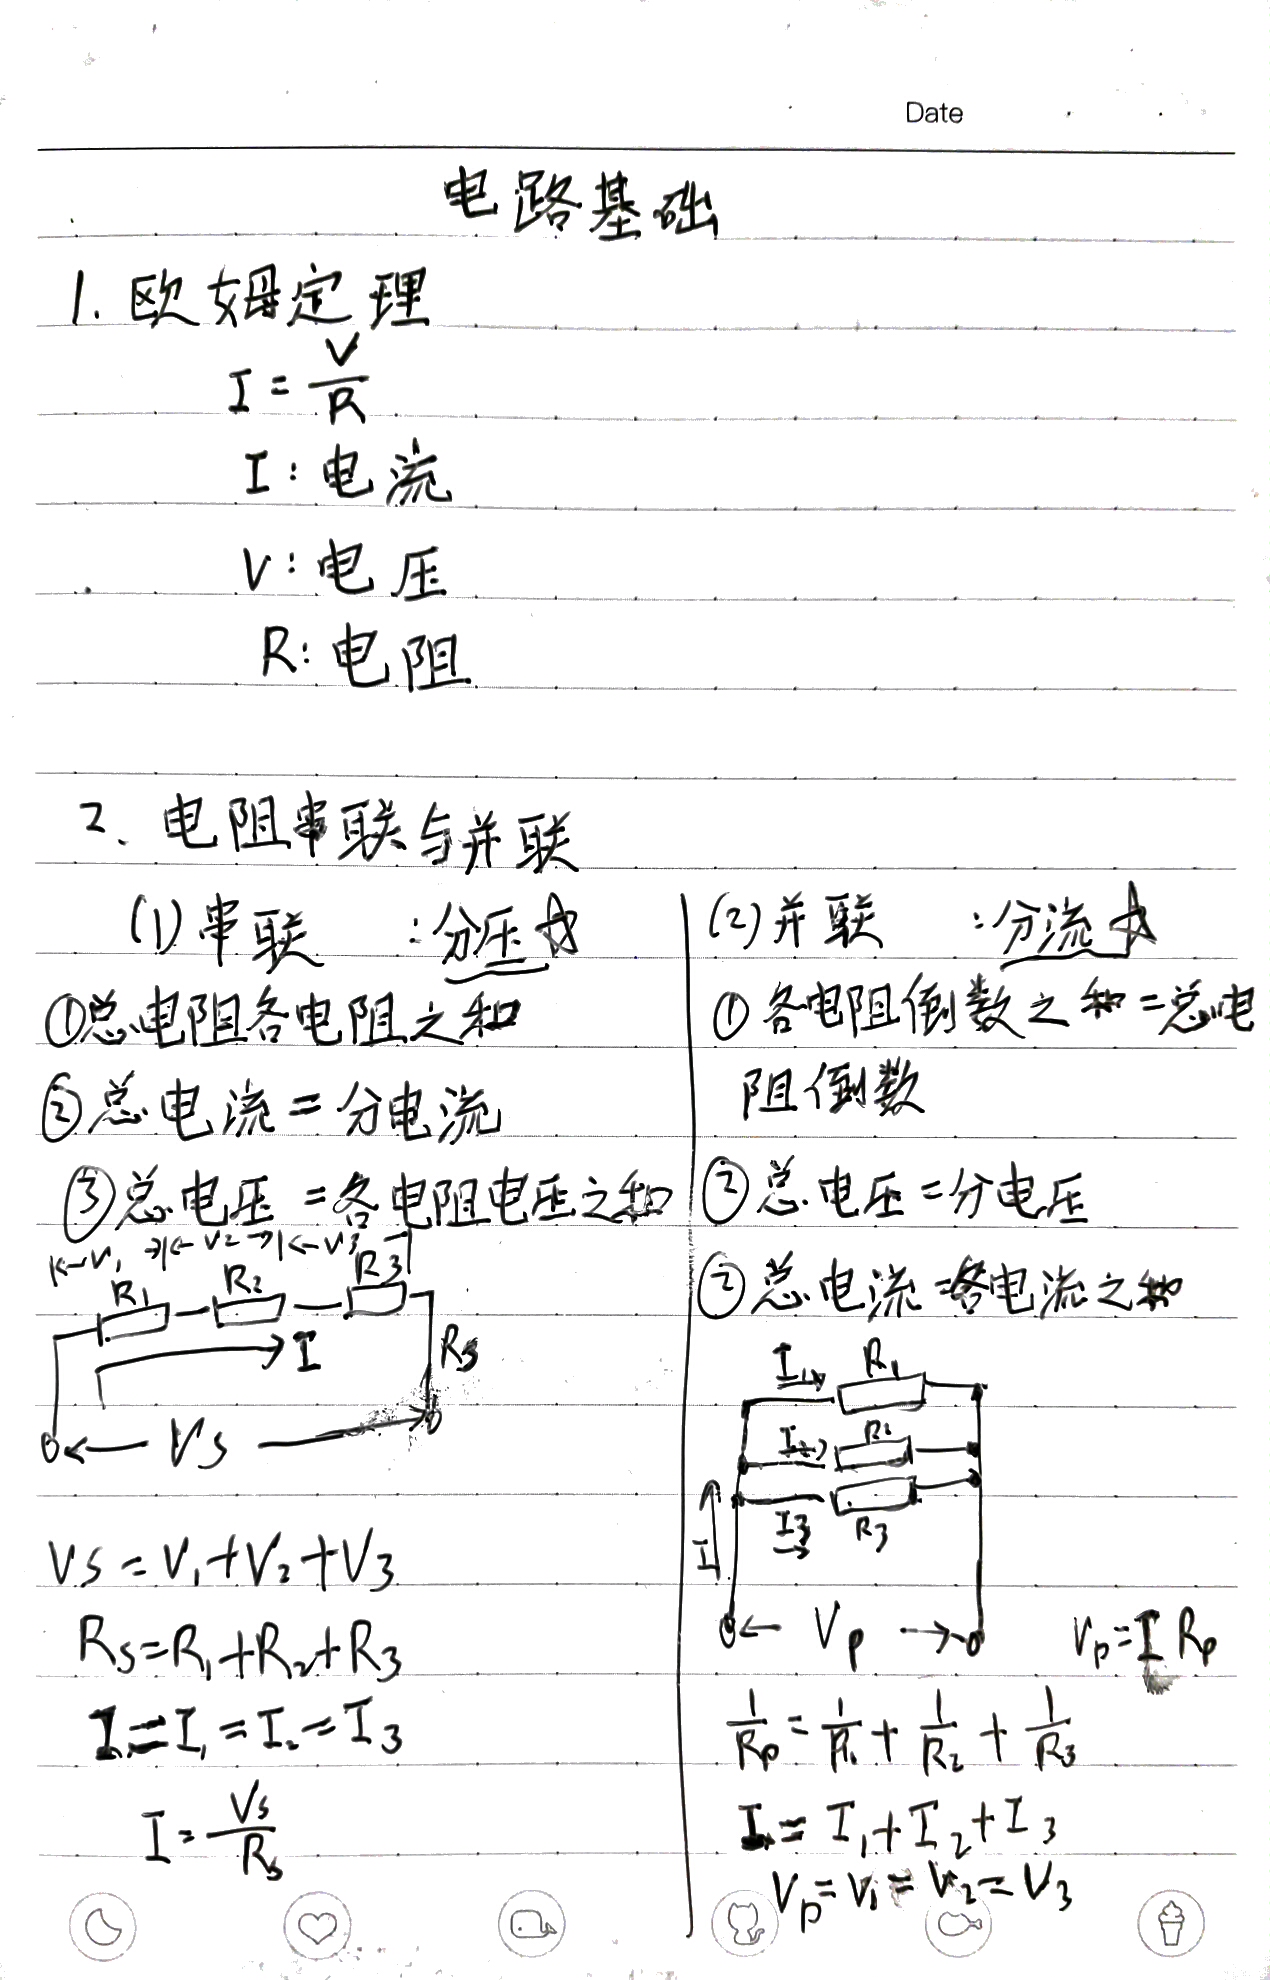 Date
电路基础
1. 欧姆定理
I = V/R
I: 电流
V: 电压
R: 电阻
2、电阻串联与并联
(1) 串联 : 分压☆
①总电阻各电阻之和
②总电流=分电流
③总电压=各电阻电压之和
|←V₁→|←V₂→|←V₃→|
R₁ R₂ R₃
I Rs
←Vs→
Vs=V₁+V₂+V₃
Rs=R₁+R₂+R₃
I=I₁=I₂=I₃
I=Vs/Rs
(2) 并联 : 分流☆
①各电阻倒数之和=总电
阻倒数
②总电压=分电压
②总电流=各电流之和
I₁ R₁
I₂ R₂
I₃ R₃
I
←Vp→ Vp=I Rp
1/Rp=1/R₁+1/R₂+1/R₃
I=I₁+I₂+I₃
Vp=V₁=V₂=V₃